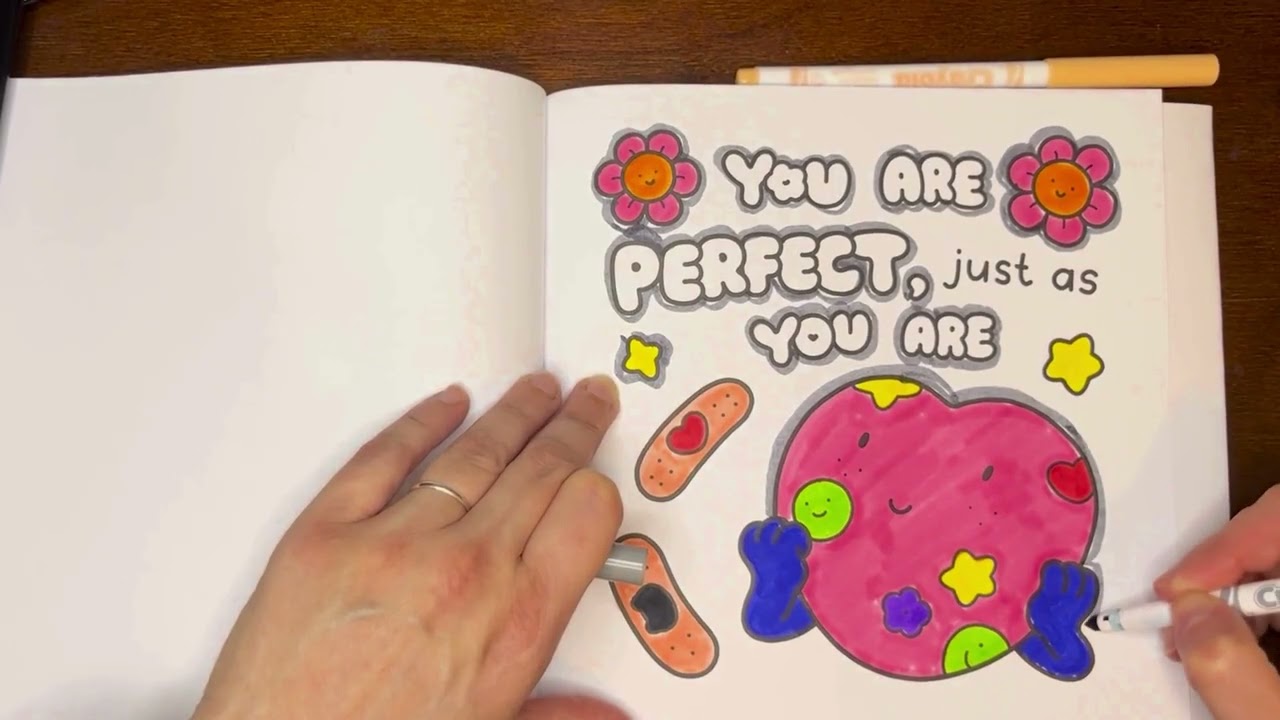 YOU ARE
PERFECT, just as
YOU ARE